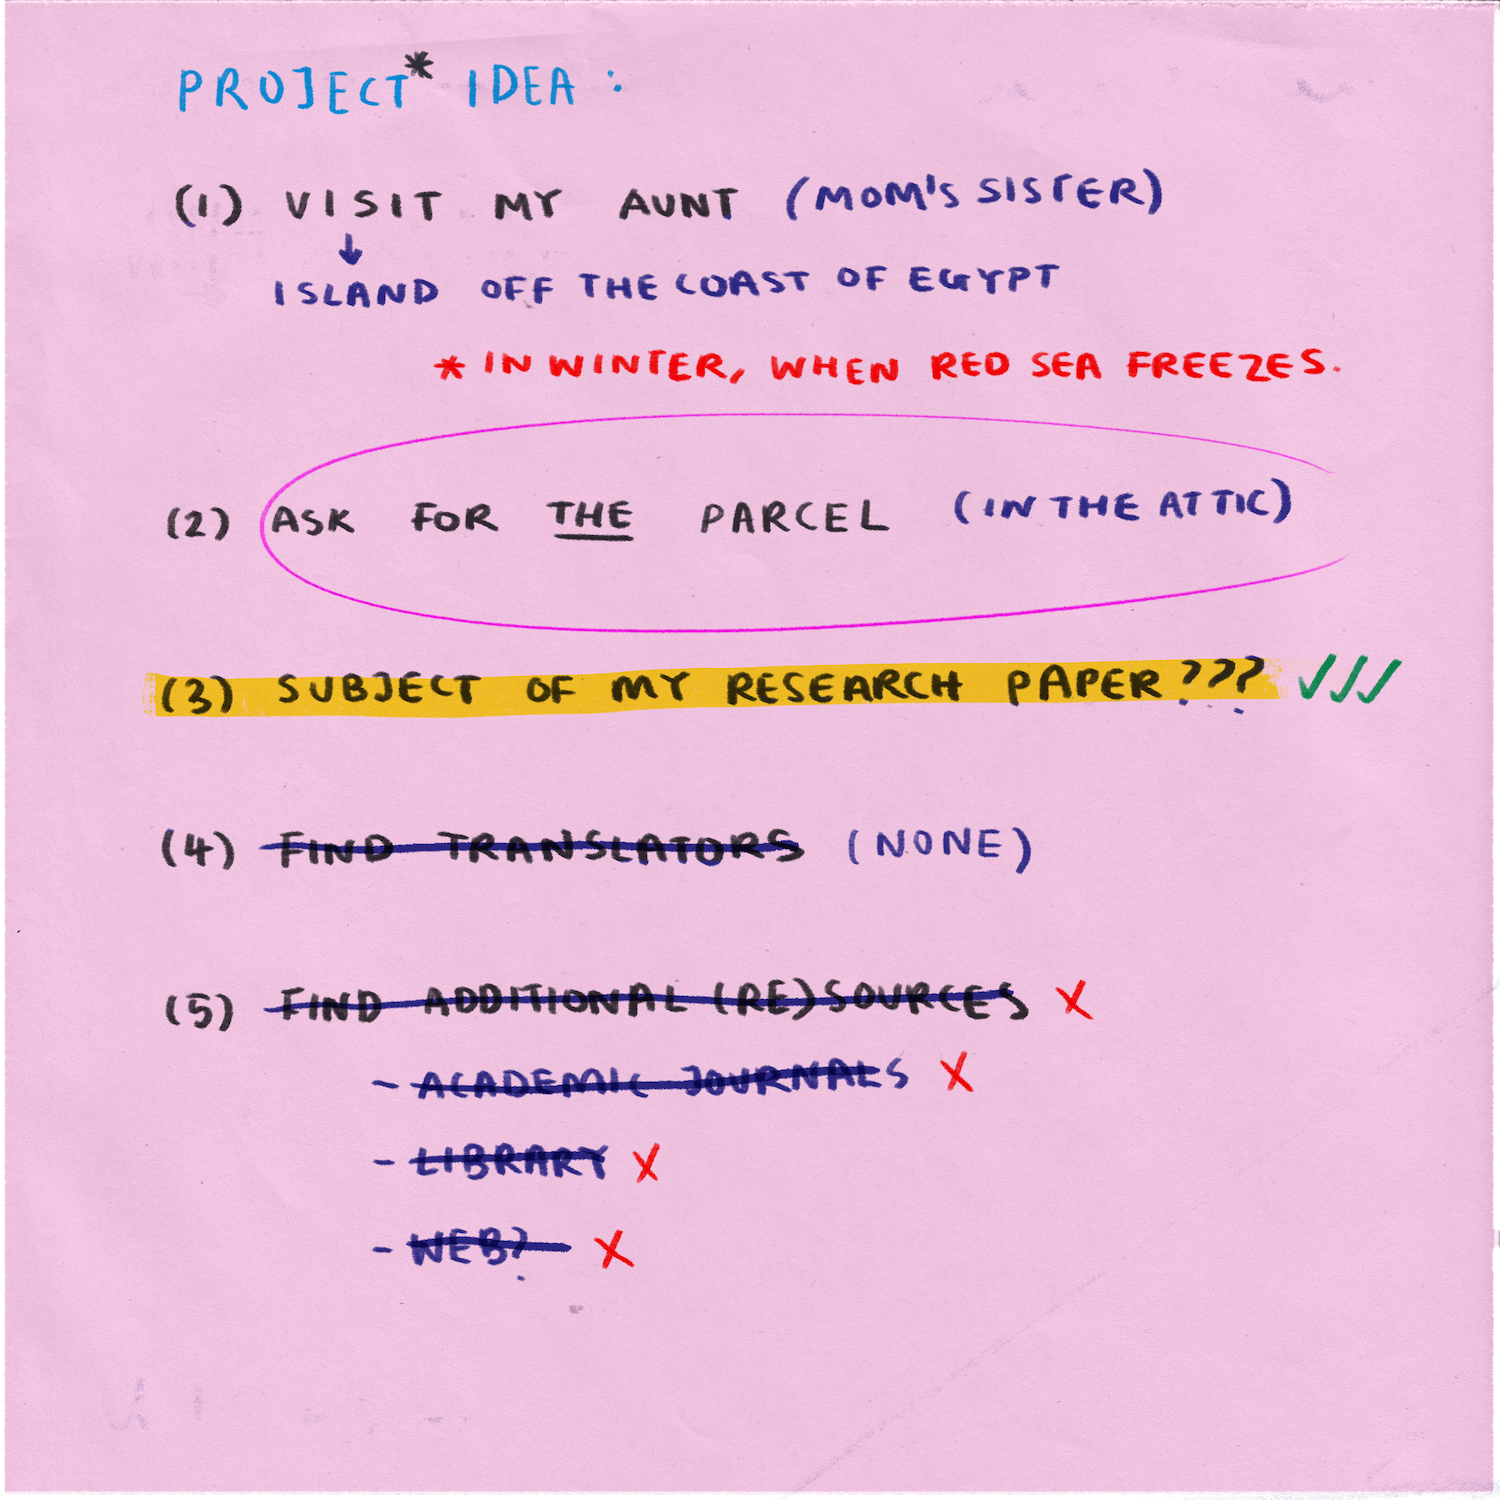 PROJECT* IDEA:
(1) VISIT MY AUNT (MOM'S SISTER)
↓
ISLAND OFF THE COAST OF EGYPT
* IN WINTER, WHEN RED SEA FREEZES.
(2) ASK FOR THE PARCEL (IN THE ATTIC)
(3) SUBJECT OF MY RESEARCH PAPER??? ✓✓✓
(4) FIND TRANSLATORS (NONE)
(5) FIND ADDITIONAL (RE)SOURCES X
- ACADEMIC JOURNALS X
- LIBRARY X
- WEB? X